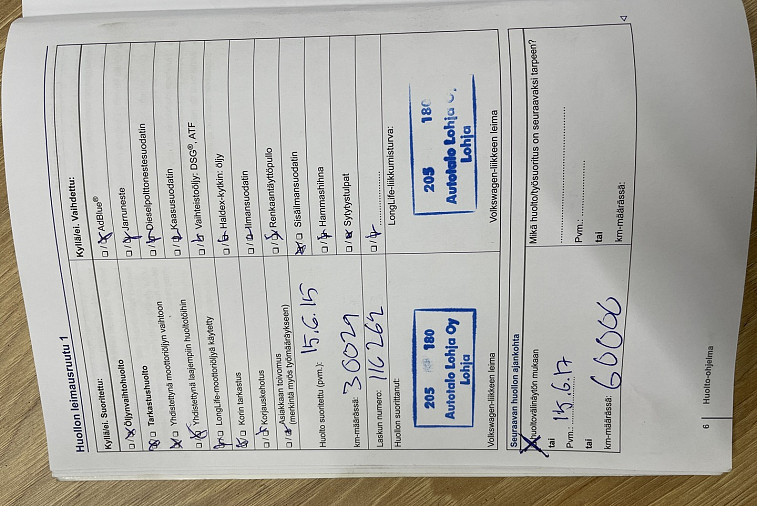 Huollon leimausruutu 1
Kyllä/ei. Suoritettu:
Öljynvaihtohuolto
Tarkastushuolto
Yhdistettynä moottoriöljyn vaihtoon
Yhdistettynä laajempiin huoltotöihin
LongLife-moottoriöljyä käytetty
Korin tarkastus
Korjauskehotus
Asiakkaan toivomus
(merkintä myös työmääräykseen)
Huolto suoritettu (pvm.): 15.6.15
km-määrässä: 30029
Laskun numero: 116262
Huollon suorittanut:
205 180
Autotalo Lohja Oy
Lohja
Volkswagen-liikkeen leima
Kyllä/ei. Vaihdettu:
AdBlue®
Jarruneste
Dieselpolttonestesuodatin
Kaasusuodatin
Vaihteistoöljy: DSG®, ATF
Haldex-kytkin: öljy
Ilmansuodatin
Renkaantäyttöpullo
Sisäilmansuodatin
Hammashihna
Sytytystulpat
LongLife-liikkumisturva:
205 180
Autotalo Lohja
Lohja
Volkswagen-liikkeen leima
Seuraavan huollon ajankohta
huoltovälinäytön mukaan
tai
Pvm.: 15.6.17
tai
km-määrässä: 60000
Mikä huolto/työsuoritus on seuraavaksi tarpeen?
Pvm.:
tai
km-määrässä:
6 | Huolto-ohjelma